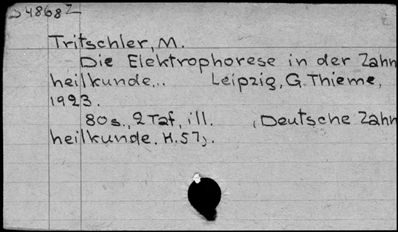 D48682
Tritschler, M.
Die Elektrophorese in der Zahn
heilkunde... Leipzig, G. Thieme,
1923.
80s., 2 Taf., ill. (Deutsche Zahn
heilkunde. H. 57).